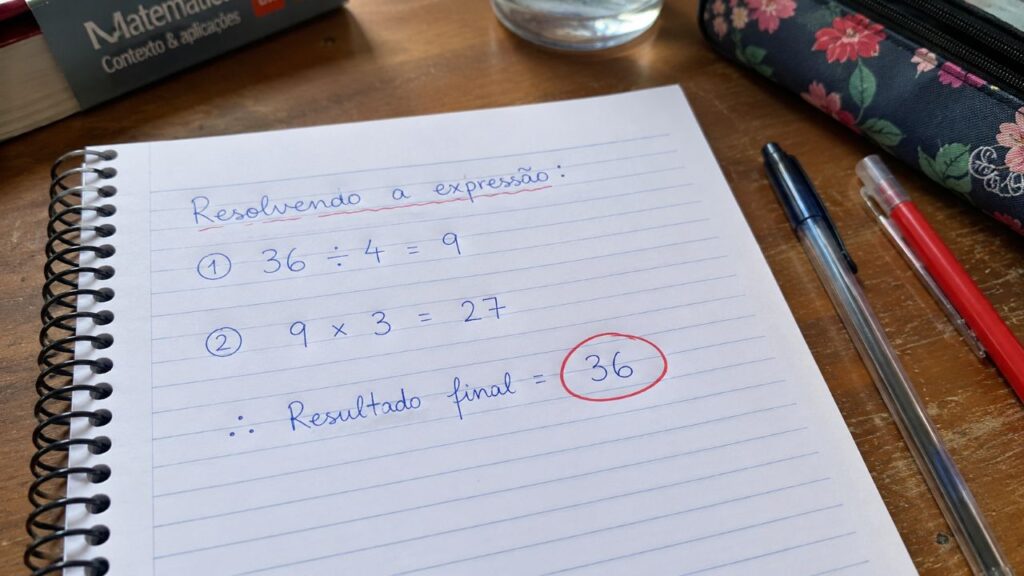 Contexto & aplicações
Resolvendo a expressão:
① 36 ÷ 4 = 9
② 9 × 3 = 27
∴ Resultado final = 36